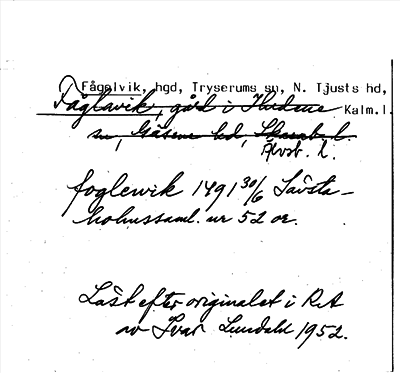 Fågelvik, hgd, Tryserums sn, N. Tjusts hd,
Kalm.l.
Fåglavik, gård i Hudene
sn, Gäsene hd, Skarab. l.
Älvsb. l.
foglewik 1491 30/6 Sävsta-
holmssaml. nr 52 or.
Läst efter originalet i RA
av Ivar Lundahl 1952.